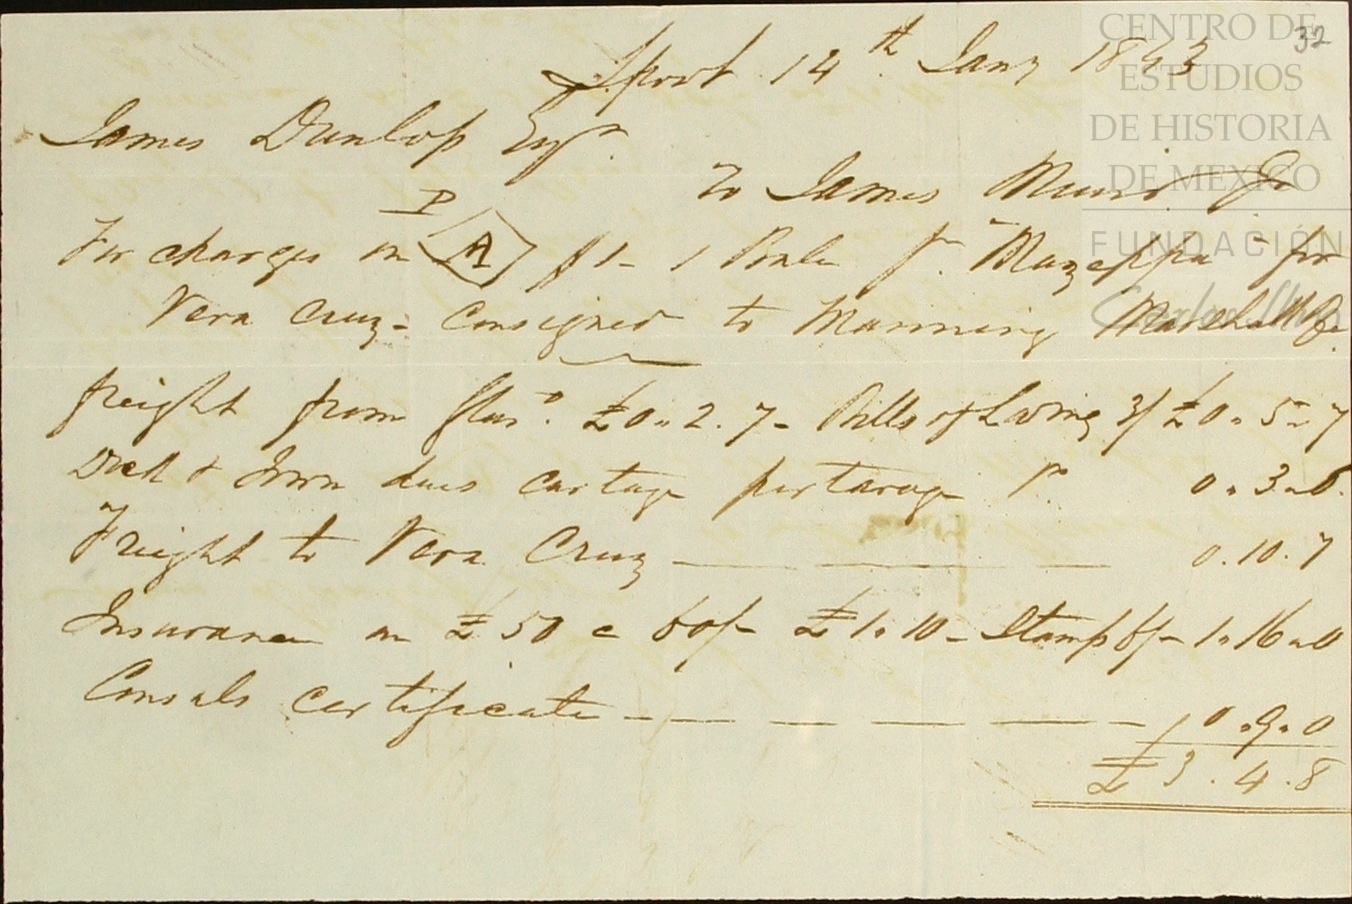 32
Lpool 14th Jany 1843
James Dunlop Esqr.
To James Muir Dr
D
For charges on A # 1 - 1 Bale pr. "Mazeppa" for
Vera Cruz - Consigned to Manning Marshall &Co.
freight from Glaso. £0.. 2. 7 - Bills of Lading 3/ £0.. 5.. 7
Dock & Town dues cartage porterage 0.. 3.. 6.
Freight to Vera Cruz 0. 10. 7
Insurance on £50 @ 60/- £1.. 10 - Stamp 6/- 1.. 16.. 0
Consuls certificate - 0.. 9.. 0
£3. 4. 8
CENTRO DE
ESTUDIOS
DE HISTORIA
DE MEXICO
FUNDACIÓN